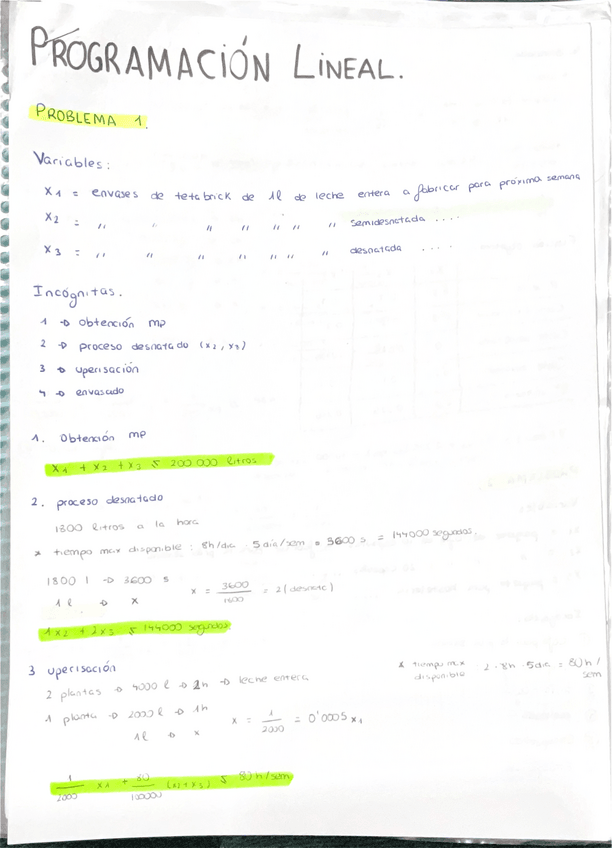 PROGRAMACIÓN LINEAL.
PROBLEMA 1.
Variables:
X1 = envases de tetabrick de 1l de leche entera a fabricar para próxima semana
X2 = ,, ,, ,, ,, ,, ,, ,, semidesnatada ....
X3 = ,, ,, ,, ,, ,, ,, ,, desnatada ....
Incógnitas.
1 → obtención mp
2 → proceso desnatado (x2, x3)
3 → uperisación
4 → envasado
1. Obtención mp
x1 + x2 + x3 ≤ 200 000 litros
2. proceso desnatado
1800 litros a la hora
* tiempo max disponible: 8h/dia · 5 dia/sem · 3600 s = 144000 segundos.
1800 l → 3600 s
1 l → x
x = 3600/1800 = 2 (desnatc)
1x2 + 2x3 ≤ 144000 segundos
3 uperisación
* tiempo max disponible : 2 · 8h · 5dia = 80h/sem
2 plantas → 4000 l → 2h → leche entera
1 planta → 2000 l → 1h
1l → x
x = 1/2000 = 0'0005 x1
1/2000 x1 + 60/100000 (x2+x3) ≤ 80 h/sem